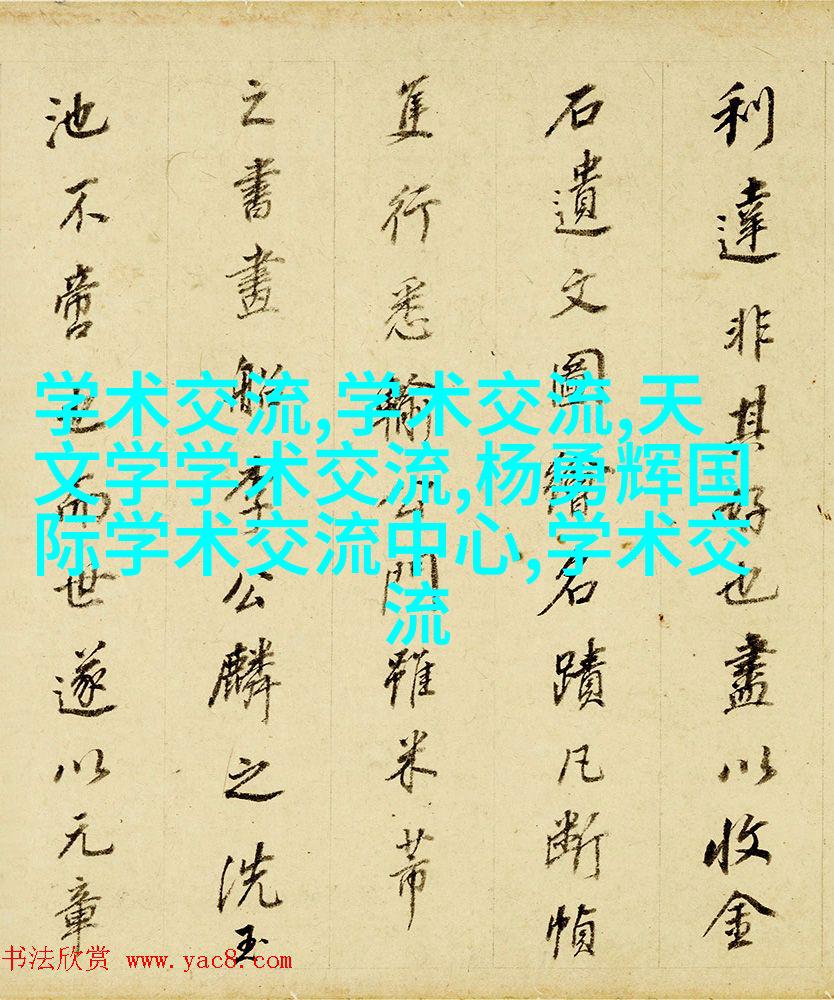 利達非其好也盡以收金
石遺文圖繪名蹟凡断幀
隻行悉輸公門雖米芾
之書畫船李公麟之洗玉
池不啻也而世遂以元章
学术交流,学术交流,天
文学学术交流,杨勇辉国
际学术交流中心,学术交
流
书法欣赏 www.yac8.com